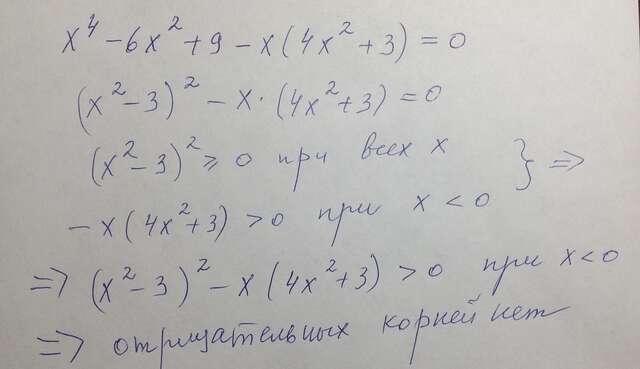 x⁴ - 6x² + 9 - x(4x² + 3) = 0
(x² - 3)² - x·(4x² + 3) = 0
(x² - 3)² ≥ 0 при всех x } =>
- x(4x² + 3) > 0 при x < 0
=> (x² - 3)² - x(4x² + 3) > 0 при x < 0
=> отрицательных корней нет